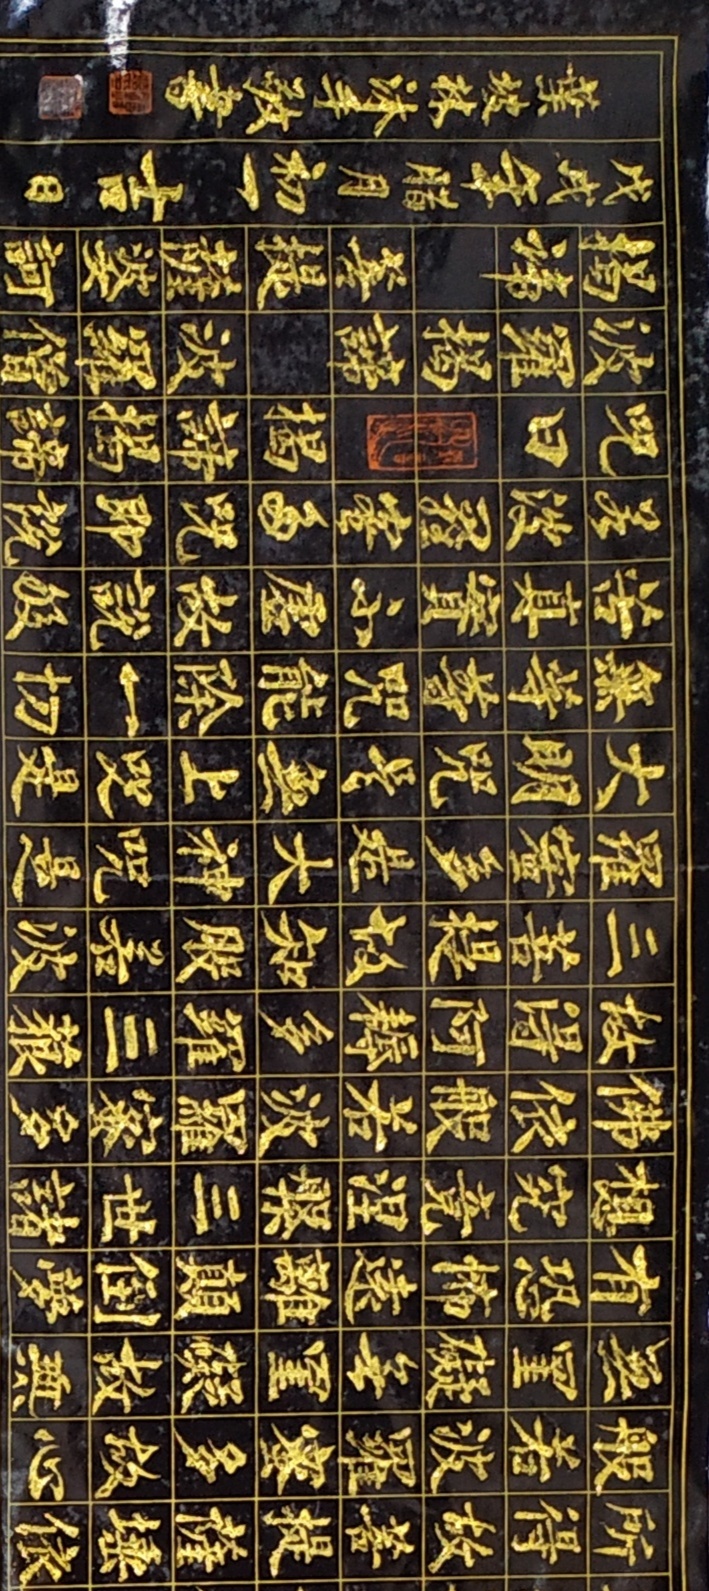 所得故菩提薩埵依
般若波羅蜜多故心
無罣礙無罣礙故無
有恐怖遠離顛倒夢
想究竟涅槃三世諸
佛依般若波羅蜜多
故得阿耨多羅三藐
三菩提故知般若波
羅蜜多是大神咒是
大明咒是無上咒是
無等等咒能除一切
苦真實不虛故說般
若波羅蜜多咒即說
咒曰 揭諦揭諦
波羅揭諦 波羅僧
揭諦 菩提薩婆訶
戊戌年臘月初一吉日
葉林沐手敬書